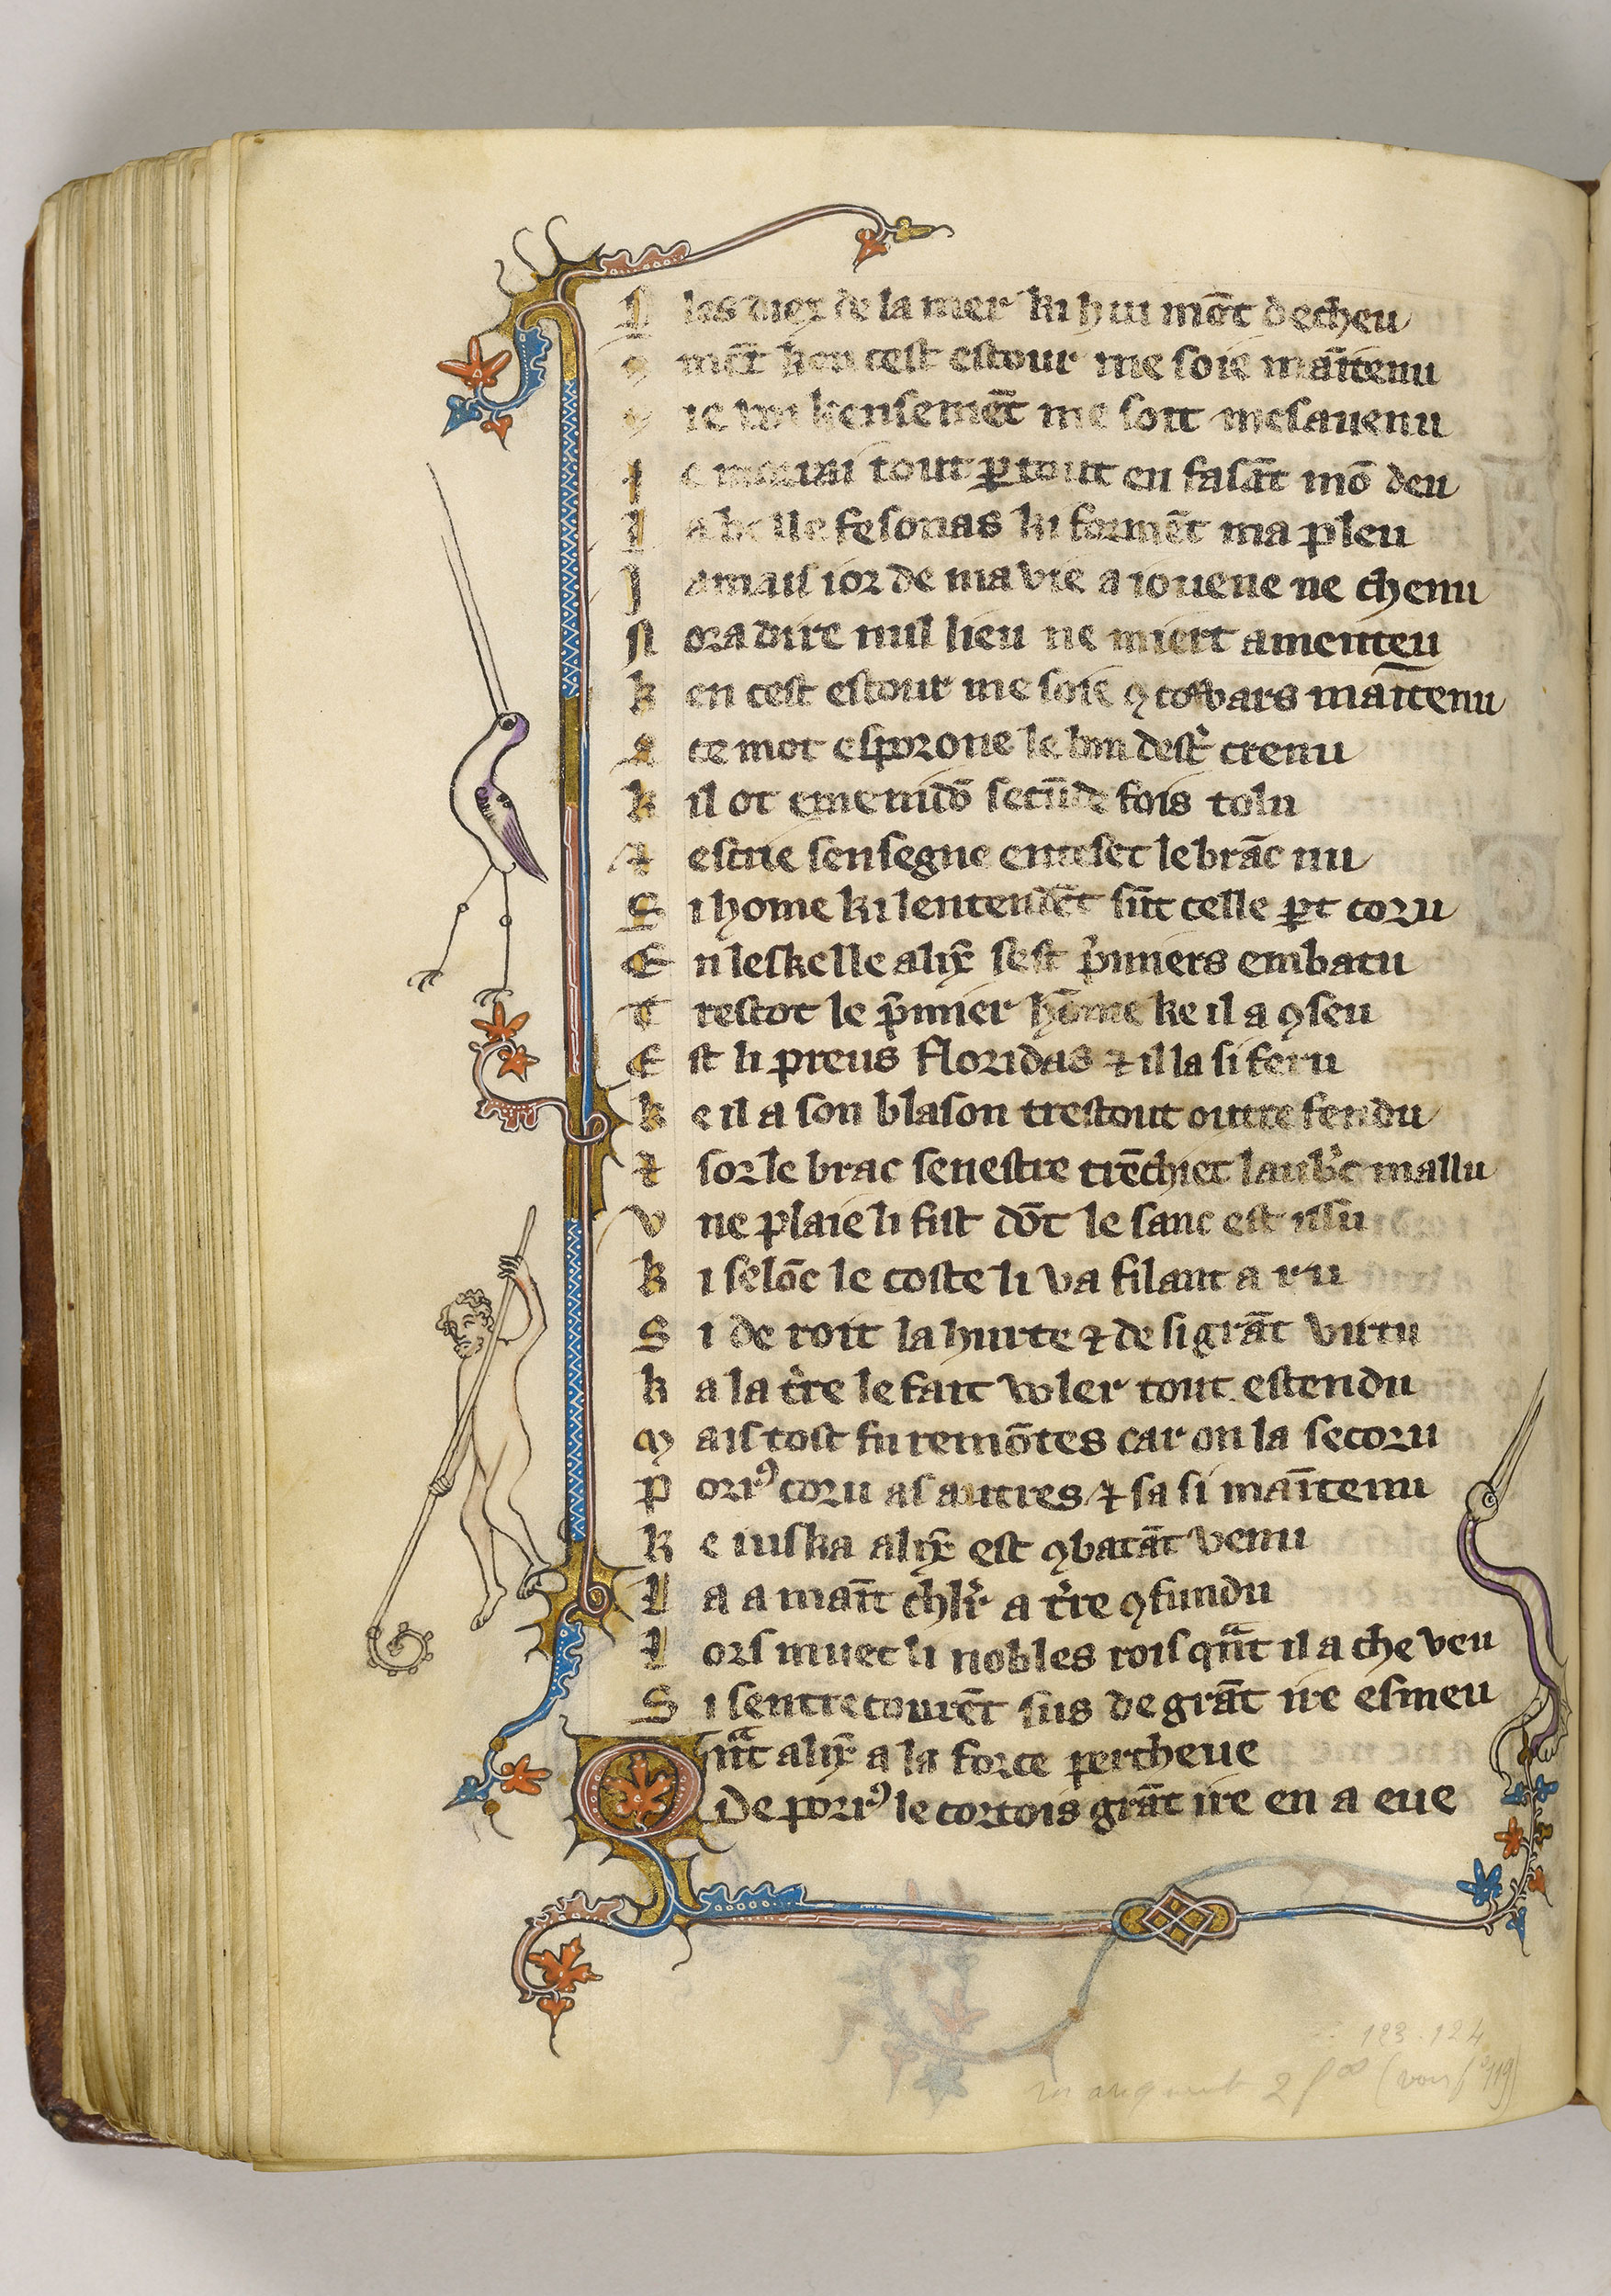 A las diex de la mer ki hui mōt decheu
mēt ken cest estour me soie māītenu
ie kensemēt me soit mesauenu
I e tout ꝑ tout en faisāt mō deu
L a belle fesonas ki formēt ma pleu
J amais ior de ma vie a iouene ne chenu
N ora dire nul lieu ne miert amenteu
k en cest estour me soie ꝯ cowars māītenu
A ce mot esporone le bon dest᷑ crenu
k il ot emenidō secūde fois tolu
⁊ escrie sensegne enteset le brāc nu
S i home ki lentendēt sūt celle ꝑt coru
E n leskelle alix᷑ sest p᷑miers embatu
T restot le p᷑mier hōme ke il a ꝯseu
E st li preus floridas ⁊ il la si feru
k e il a son blason trestout outre fendu
⁊ sor le brac senestre trēchiet laub᷑c mallu
V ne plaie li fist dōt le sanc est issu
k i selōc le coste li va filant a ru
S i de roit la hurte ⁊ de si grāt virtu
k a la t᷑re le fait voler tout estendu
M ais tost fu remōtes car on la secoru
P oriꝰ coru as autres ⁊ sa si māītenu
k e iuska alix᷑ est ꝯbatāt venu
L a a māīt ch᷑lr᷑ a t᷑re ꝯfundu
L ors muet li nobles rois qᷓnt il a che veu
S i sentrecourēt sus de grāt ire esmeu
Qᷓnt alix᷑ a la force percheue
De poriꝰ le cortois grāt ire en a eue
123.124
manquent 2 fᵒˢ (voir fᵒ 119)